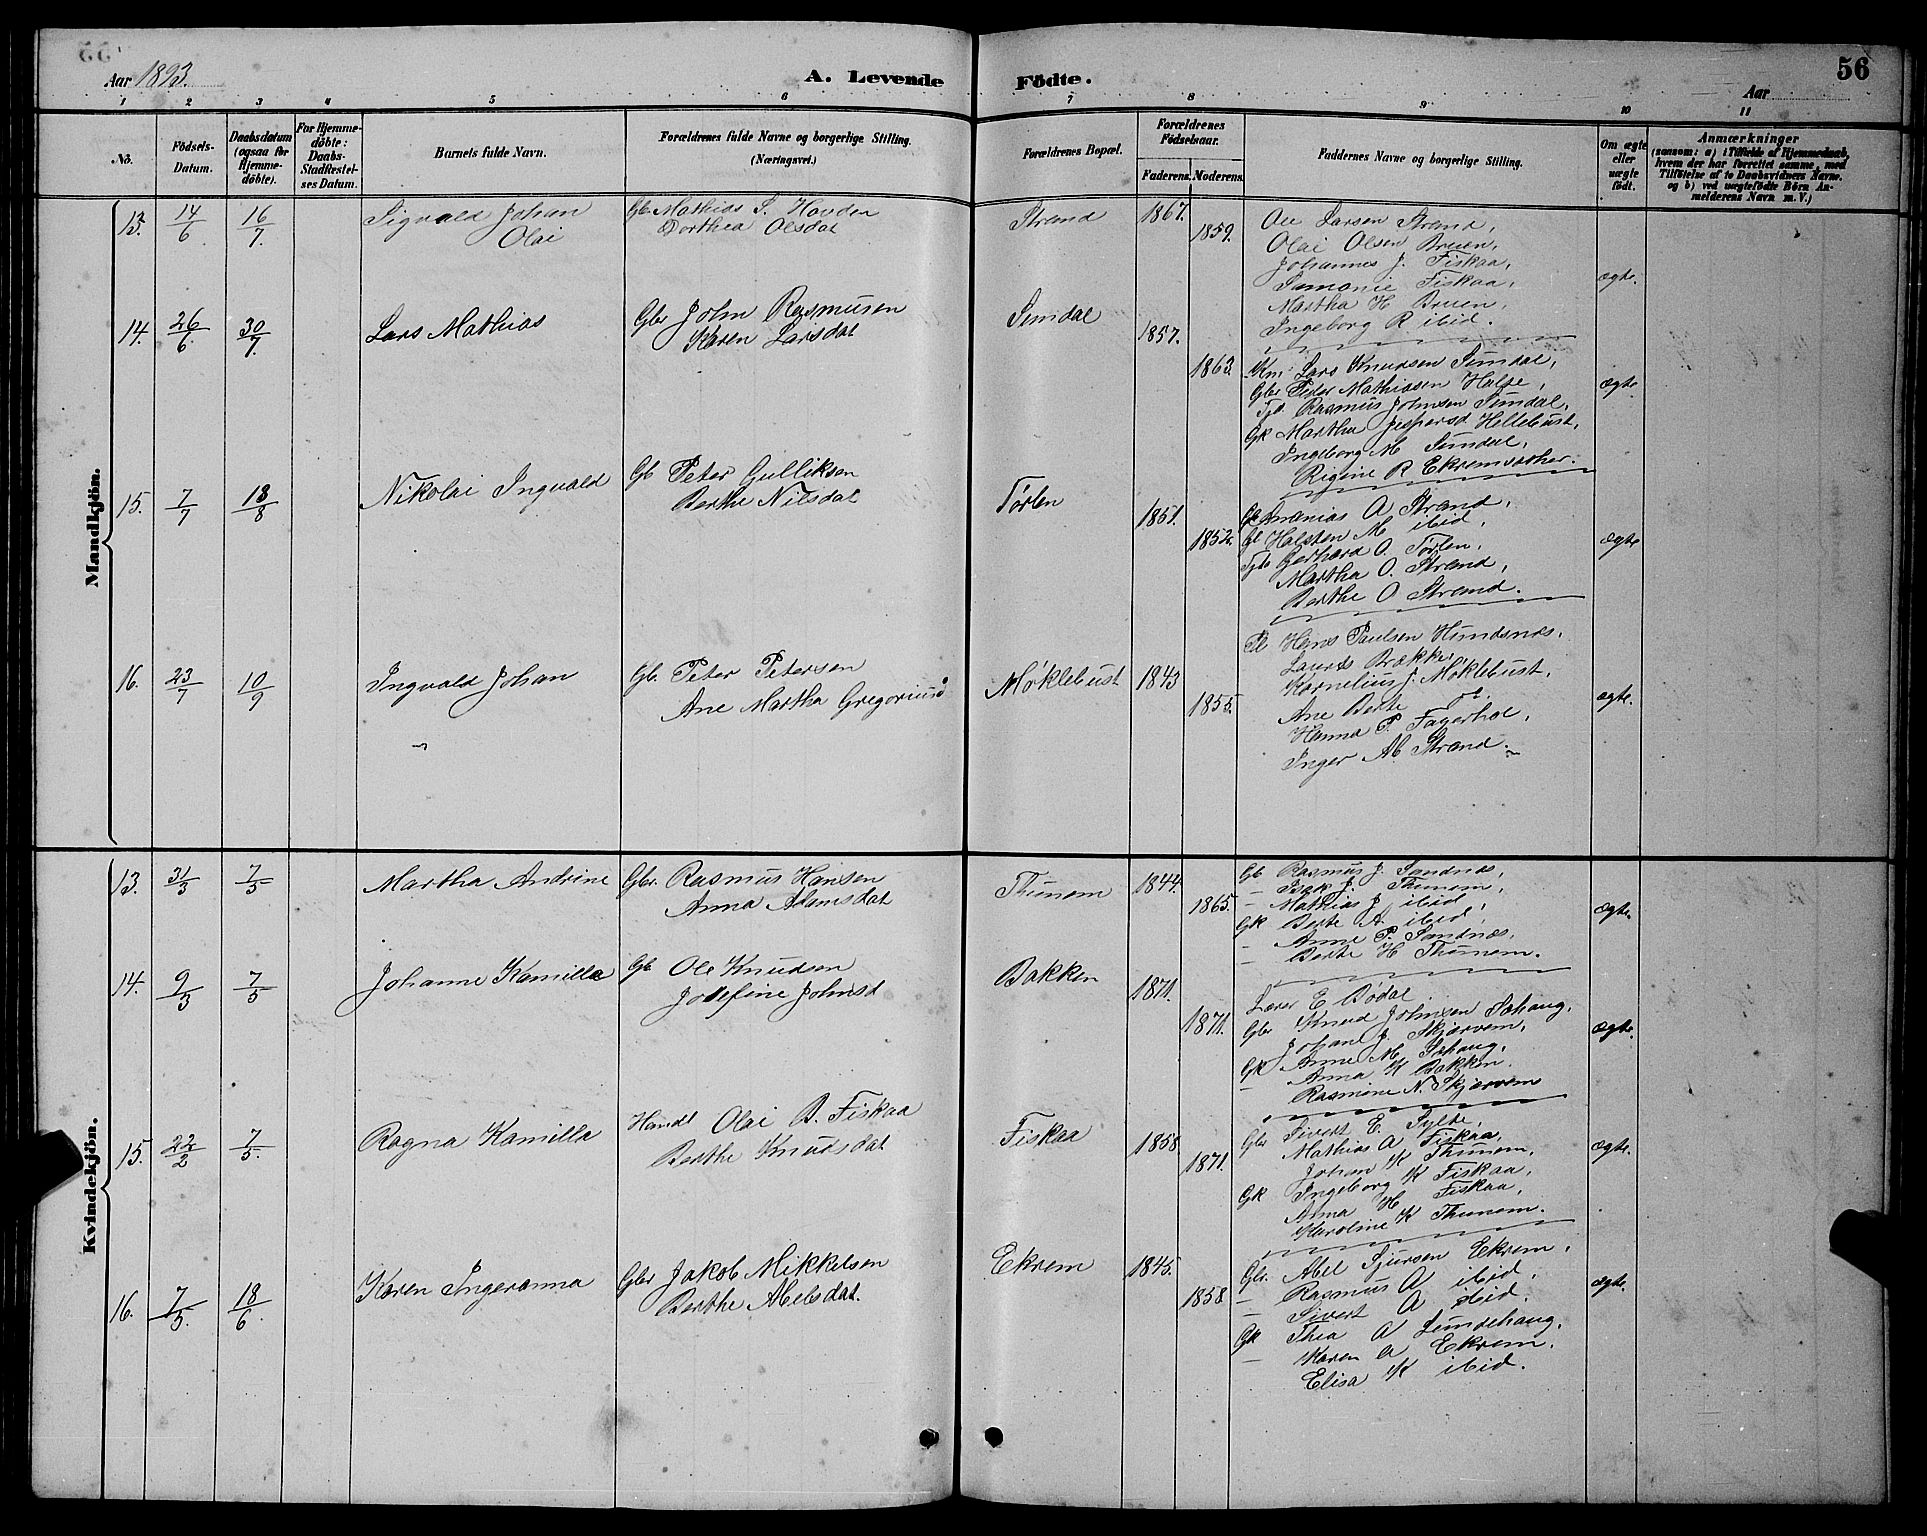 Aar 1893.
A. Levende
Födte.
Aar
56
1 2 3 4 5 6 7 8 9 10 11
No.
Födsels-Datum.
Daabsdatum (ogsaa for Hjemmedöbte).
For Hjemmedöbte: Daabs-Stadfæstelses Datum.
Barnets fulde Navn.
Forældrenes fulde Navne og borgerlige Stilling. (Næringsvei.)
Forældrenes Bopæl.
Forældrenes Födselsaar.
Faderens. Moderens.
Faddernes Navne og borgerlige Stilling.
Om ægte eller uægte födt.
Anmærkninger
(saasom: a) i Tilfælde af Hjemmedaab, hvem der har forrettet samme, med Tilföielse af to Daabsvidners Navne. og b) ved uægtefödte Börn Anmelderens Navn m. V.)
Mandkjön.
13. 14/6 16/7 Sigvald Johan
Olai
Gbr Mathias S. Hovden
Dorthea Olsdat
Strand 1867. 1859.
Ole Larsen Strand,
Olai Olsen Bruen,
Johannes J. Fiskaa,
Samonie Fiskaa,
Martha H Bruen,
Ingeborg R ibid.
ægte.
14. 26/6 30/7 Lars Mathias
Gbr John Rasmusen
Karen Larsdat
Sundal 1857. 1863.
Km: Lars Knudsen Sundal,
Gbr Peder Mathiasen
Rasmus Johnsen Sundal,
Gk Martha Jespersd Hellebust,
Ingeborg M Sundal,
Regine R Ekremsæther.
ægte
15. 7/7 13/8 Nikolai Ingvald
Gb Peter Gulliksen
Berthe Nilsdat
Tørlen 1851. 1852.
Ananias A Strand,
Gb Halsten M ibid,
Gerhard O. Tørlen,
Martha O. Strand,
Berthe O Strand.
ægte
16. 23/7 10/9 Ingvald Johan
Gb. Peter Petersen
Ane Martha Gregoriusd
Møklebust 1843 1855.
Hans Paulsen Hundsnes,
Laurits Brække,
Kornelius J. Møklebust,
Ane Berte
Hanna P. Fagerhol,
Inger M Strand.
ægte.
Kvindekjön.
13. 31/3 7/5 Martha Andrine
Gbr. Rasmus Hansen
Anna Adamsdat
Thunem 1844. 1865.
Gb Rasmus J. Sandnæs,
- Isak J. Thunem,
- Mathias J ibid,
Gk Berte A. ibid,
- Anne P. Sandnæs,
- Berte H Thunem.
ægte.
14. 9/3 7/5 Johanne Kamilla
Gb Ole Knudsen
Josefine Johnsd
Bakken 1871. 1871.
Lærer E Bødal
Gbr Knud Johnsen Sæhaug,
Johan J. Skjærvem,
Gk Anne M. Sæhaug,
- Anna K Bakken.
Rasmine N. Skjærvem
ægte.
15. 22/2 7/5. Ragna Kamilla
Handl Olai B. Fiskaa
Berthe Knudsdat
Fiskaa 1858. 1871.
Gbr Sivert E. Sylte,
Mathias A Fiskaa,
Johan K Thunem,
Gk Ingeborg K Fiskaa,
Anna H Fiskaa,
Karoline K Thunem.
ægte.
16. 7/5. 18/6 Karen Ingeranna
Gbr Jakob Mikkelsen
Berthe Abelsdat.
Ekrem 1845. 1858.
Gbr. Abel Sjursen Ekrem,
- Rasmus A ibid,
- Sivert A ibid.
Gk Thea A Lundehaug,
- Karen A Ekrem,
Elisa K ibid.
ægte.